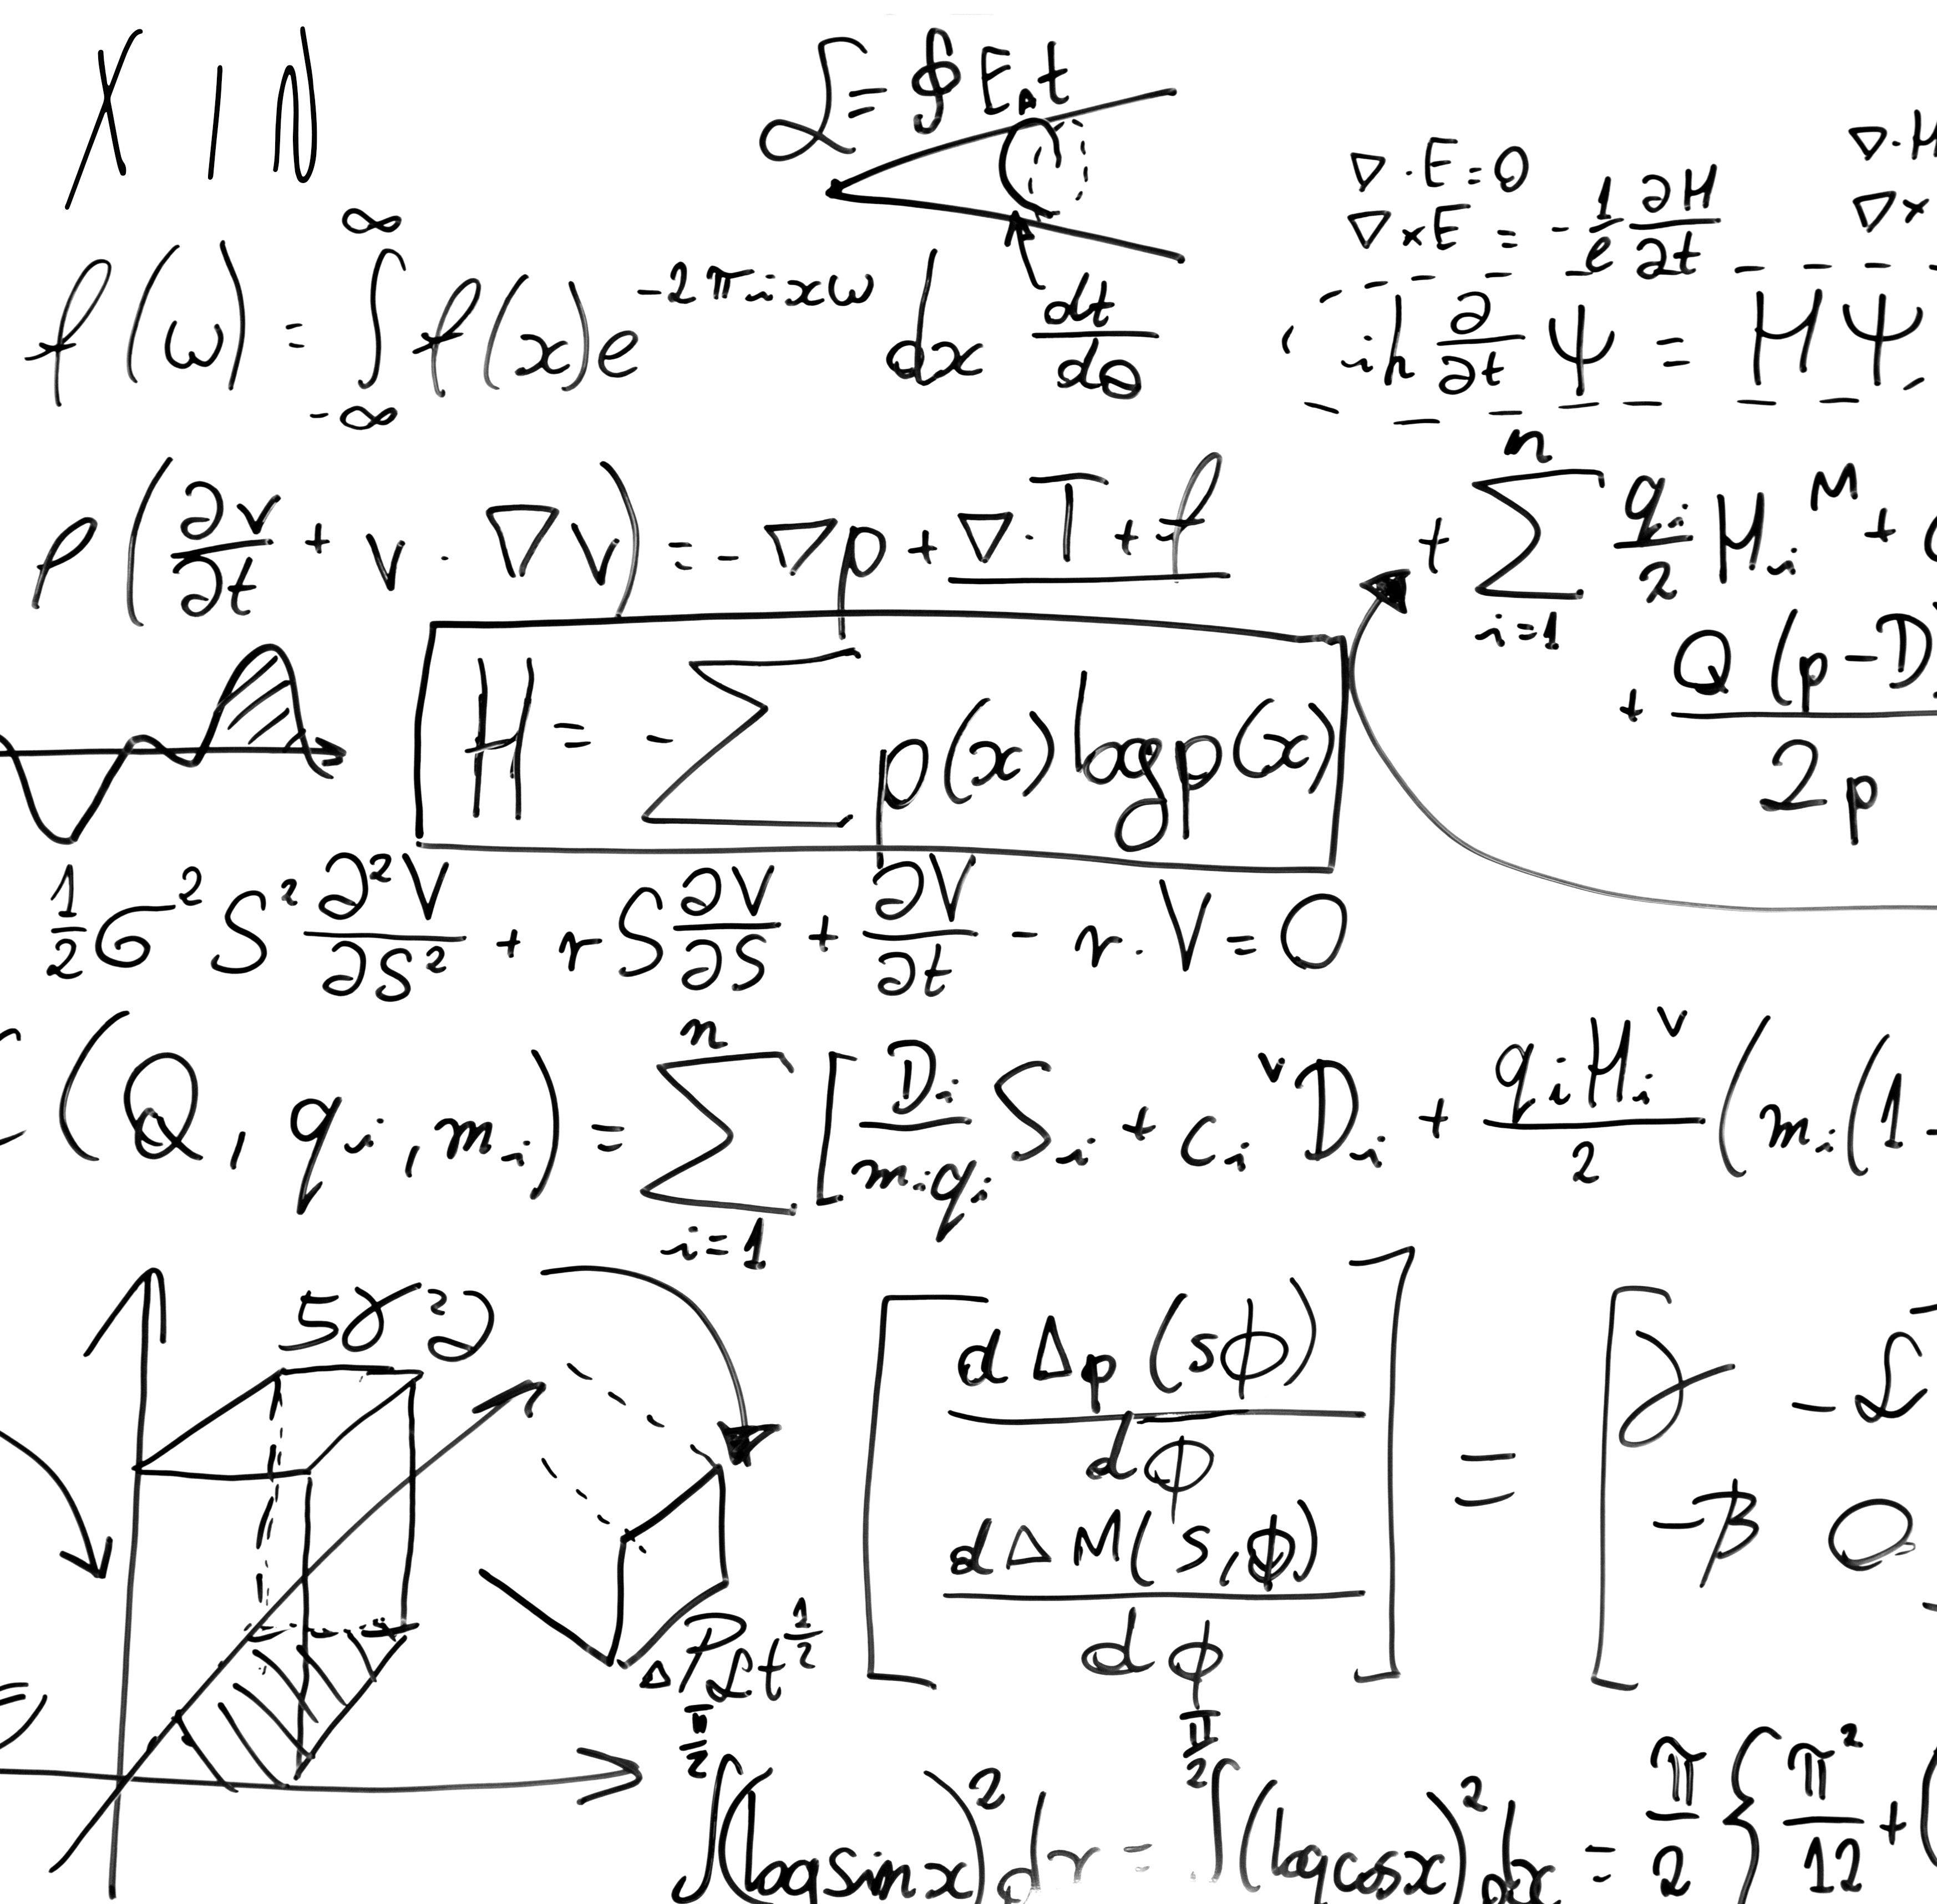 X I N
L = ∮ E_A t
∇ · E = 0
∇ · H
∇ × E = - 1/e ∂H/∂t
∇ ×
f(ω) = ∫_{-∞}^{∞} f(x) e^{-2πixω} dx
dt/dθ
ih ∂/∂t Ψ = HΨ
ρ(∂v/∂t + v · ∇v) = - ∇p + ∇ · T + f
+ Σ_{i=1}^{n} q_i/2 H_i^M +
+ Q(p - D)/2p
H = - Σ p(x) log p(x)
1/2 σ² S² ∂²V/∂S² + r S ∂V/∂S + ∂V/∂t - r · V = 0
(Q, q_i, m_i) = Σ_{i=1}^{n} [ D_i/(m_i q_i) S_i + c_i^v D_i + q_i H_i^v/2 (m_i (1 -
[ dΔp(sϕ)/dϕ
dΔM(s,ϕ)/dϕ ] = [
-β 0
t^{1/2}
∫^{π/2} (log sin x)² dx = ∫^{π/2} (log cos x)² dx = π/2 { π²/12 + (